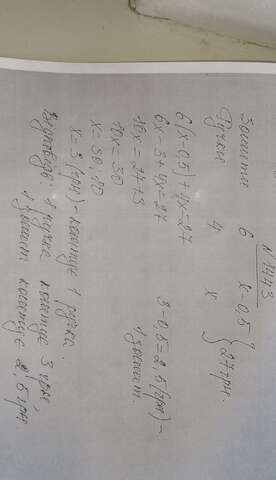 N 1443
Зошити 6 x-0,5
Ручки 4 x } 27 грн.
6(x-0,5)+4x=27
6x-3+4x=27
10x=27+3
10x=30
x=30:10
x=3 (грн)-коштує 1 ручка.
3-0,5=2,5(грн)-
1 зошит.
Відповідь: 1 ручка коштує 3 грн,
1 зошит коштує 2,5 грн.